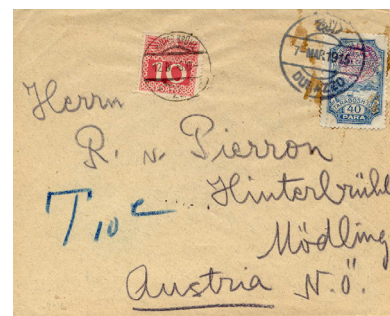 10
7-MAR 1915
DURAZZO
40
PARA
Herrn
R. v. Pierron
T 10 c
Hinterbrühl
Mödling
Austria N.Ö.